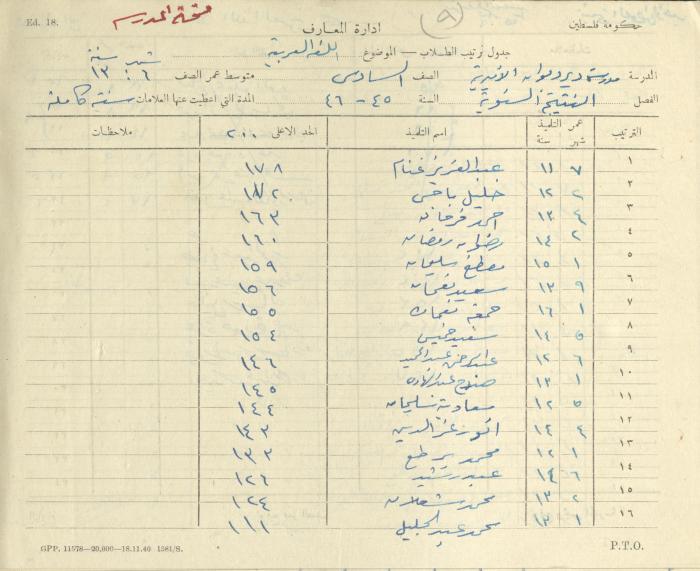 Ed. 18.
نسخة المدرسة
(٩)
حكومة فلسطين
ادارة المعارف
جدول ترتيب الطلاب — الموضوع اللغة العربية
المدرسة مدرسة دير ديوان الأميرية الصف السادس متوسط عمر الصف شهر ٦ سنة ١٣
الفصل النتيجة السنوية السنة ٤٥ - ٤٦ المدة التي اعطيت عنها العلامات سنة كاملة
الترتيب عمر التلميذ شهر سنة اسم التلميذ الحد الاعلى ٢٠٠ ملاحظات
١ ٧ ١١ عبد العزيز غنام ١٧٨
٢ ٢ ١٢ خليل
٣ ٤ ١٣ احمد فرحان ١٦٣
٤ ٢ ١٤ رضوان رمضان ١٦٠
٥ ١ ١٥ مصطفى سليمان ١٥٩
٦ ٩ ١٣ سعيد نعمان ١٥٦
٧ ١ ١٦ جمعة نعمان ١٥٥
٨ ٥ ١٤ سعيد خميس ١٥٤
٩ ٦ ١٢ عبد الرحمن عبد الحميد ١٤٦
١٠ ١ ١٣ صلاح ١٤٥
١١ ٥ ١٢ معاوية سليمان ١٤٤
١٢ ٤ ١٤ انور عز الدين ١٤٣
١٣ ١ ١٢ محمد ١٣٣
١٤ ٦ ١٤ عبد رشيد ١٢٦
١٥ ٢ ١٣ محمد شعلان ١٢٤
١٦ ١ ١٣ محمد عبد الجليل ١١١
GPP. 11578—20,000—18.11.40 1581/S.
P.T.O.